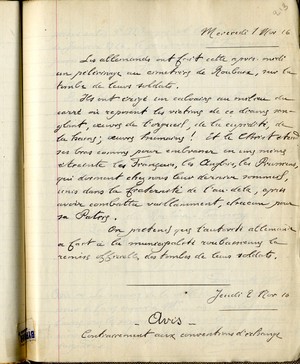 Mercredi 1 Nov 16
Les allemands ont fait cette après-midi
un pèlerinage au cimetière de Roubaix, sur la
tombe de leurs soldats.
Ils ont érigé un calvaire au milieu du
carré où reposent les victimes de ce drame san-
glant, œuvres de l'orgueil, de la cupidité, de
la haine, œuvres humaines ! Et le Christ étend
ses bras comme pour embrasser en une même
étreinte les Français, les Anglais, les Prussiens,
qui dorment chez nous leur dernier sommeil,
unis dans la fraternité de l'au-delà, après
avoir combattu vaillamment, chacun pour
sa Patrie.
On prétend que l'autorité allemande
a fait à la municipalité roubaisienne la
remise officielle des tombes de leurs soldats.
Jeudi 2 Nov 16
- Avis -
Contrairement aux conventions d'échange